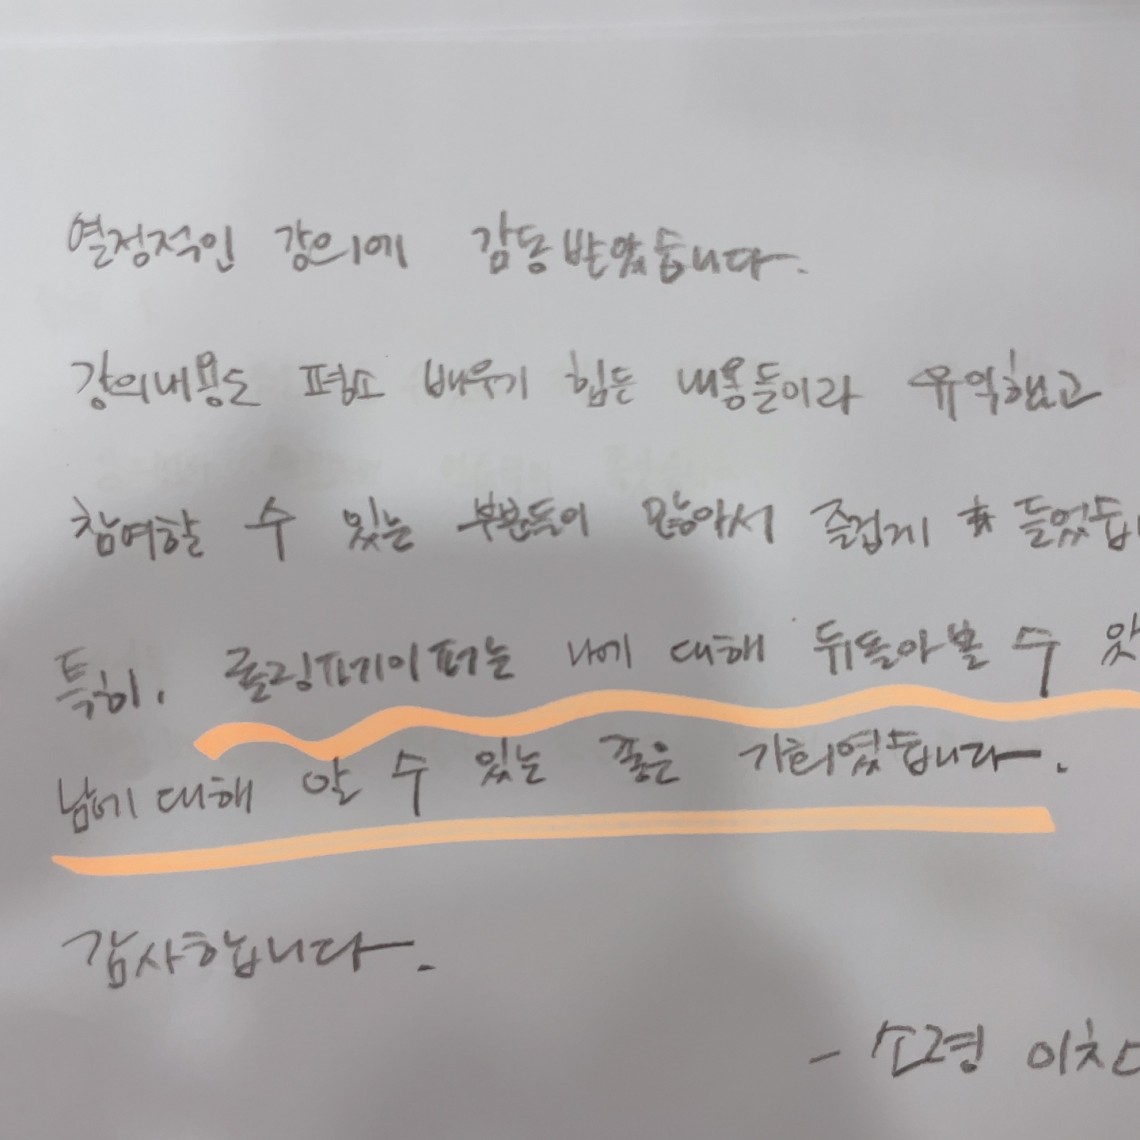 열정적인 강의에 감동받았습니다.
강의내용도 평소 배우기 힘든 내용들이라 유익했고
참여할 수 있는 부분들이 많아서 즐겁게 들었습
특히, 롤링파기이퍼는 나에 대해 뒤돌아볼 수 있
남에 대해 알 수 있는 좋은 기회였습니다.
감사합니다.
- 소령 이